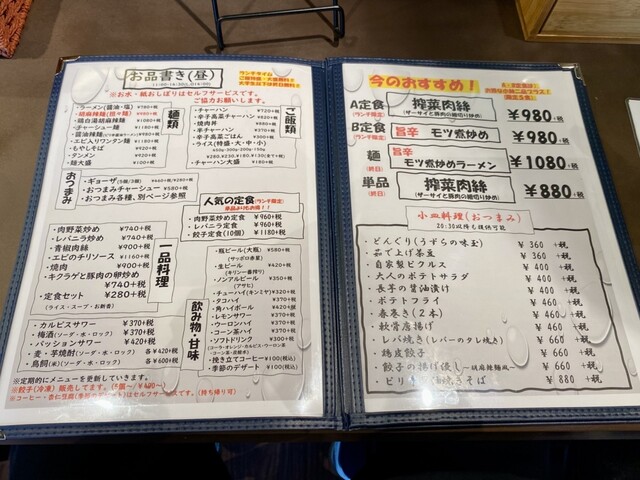 お品書き(昼)
※お水・紙おしぼりはセルフサービスです。
ご協力お願いします。
麺類
・ラーメン(醤油・塩)
・胡麻辣麺(担々麺)
・鶏白湯胡麻辣麺 ¥1080+税
・チャーシュー麺 ¥1180+税
・醤油辣麺
・エビ入りワンタン麺 ¥1180+税
・もやしそば ¥920+税
・タンメン ¥920+税
・麺大盛 ¥180+税
ご飯類
・チャーハン ¥720+税
・辛子高菜チャーハン
・焼肉丼
・半チャーハン ¥370+税
・辛子高菜ごはん
・ライス(特盛・大・中・小)
¥280.¥230.¥180.¥130(全て+税)
おつまみ
・ギョーザ(5個/3個) ¥460+税/¥280+税
・おつまみチャーシュー ¥580+税
・おつまみ各種、別ページ参照
人気の定食(ランチ限定)
・肉野菜炒め定食 ¥960+税
・レバニラ定食 ¥960+税
・餃子定食(10個) ¥1180+税
一品料理
・肉野菜炒め ¥740+税
・レバニラ炒め ¥740+税
・青椒肉絲 ¥900+税
・エビのチリソース ¥1160+税
・焼肉 ¥900+税
・キクラゲと豚肉の卵炒め
¥740+税
・定食セット ¥280+税
(ライス・スープ・お新香)
・カルピスサワー ¥370+税
・梅酒(ソーダ・水・ロック) ¥370+税
・パッションサワー ¥370+税
・麦・芋焼酎(ソーダ・水・ロック) 各¥420+税
・鳥飼(米)(ソーダ・水・ロック) 各¥600+税
飲み物・甘味
・瓶ビール(大瓶) ¥580+税
(サッポロ赤星)
・生ビール ¥420+税
(キリン一番搾り)
・ノンアルビール ¥420+税
(アサヒ)
・チューハイ(キンミヤ) ¥320+税
・タコハイ ¥370+税
・角ハイボール ¥370+税
・レモンサワー ¥370+税
・ウーロンハイ ¥370+税
・コーン茶ハイ ¥370+税
・ソフトドリンク ¥300+税
(コーラ・オレンジ・カルピス・ウーロン
・コーン茶・炭酸水)
・挽き立てコーヒー ¥100(税込)
・季節のデザート ¥100(税込)
※定期的にメニューを更新していきます。
※餃子(冷凍)販売してます。
今のおすすめ！
A定食
(ランチ限定)
搾菜肉絲
(ザーサイと豚肉の細切り炒め)
¥980+税
B定食
(ランチ限定)
旨辛
モツ煮炒め
¥980+税
麺
(終日)
旨辛
モツ煮炒めラーメン
¥1080+税
単品
(終日)
搾菜肉絲
(ザーサイと豚肉の細切り炒め)
¥880+税
小皿料理(おつまみ)
20:30以降も提供可能
・どんぐり(うずらの味玉) ¥360 +税
・茹で上げ茶豆 ¥360 +税
・自家製ピクルス ¥400 +税
・大人のポテトサラダ ¥400 +税
・長芋の醤油漬け ¥400 +税
・ポテトフライ ¥400 +税
・春巻き(2本) ¥460 +税
・軟骨唐揚げ ¥460 +税
・レバ焼き(レバーのタレ焼き) ¥660 +税
・鶏皮餃子 ¥660 +税
・餃子の揚げ浸し～胡麻辣麺風～ ¥660 +税
¥880 +税